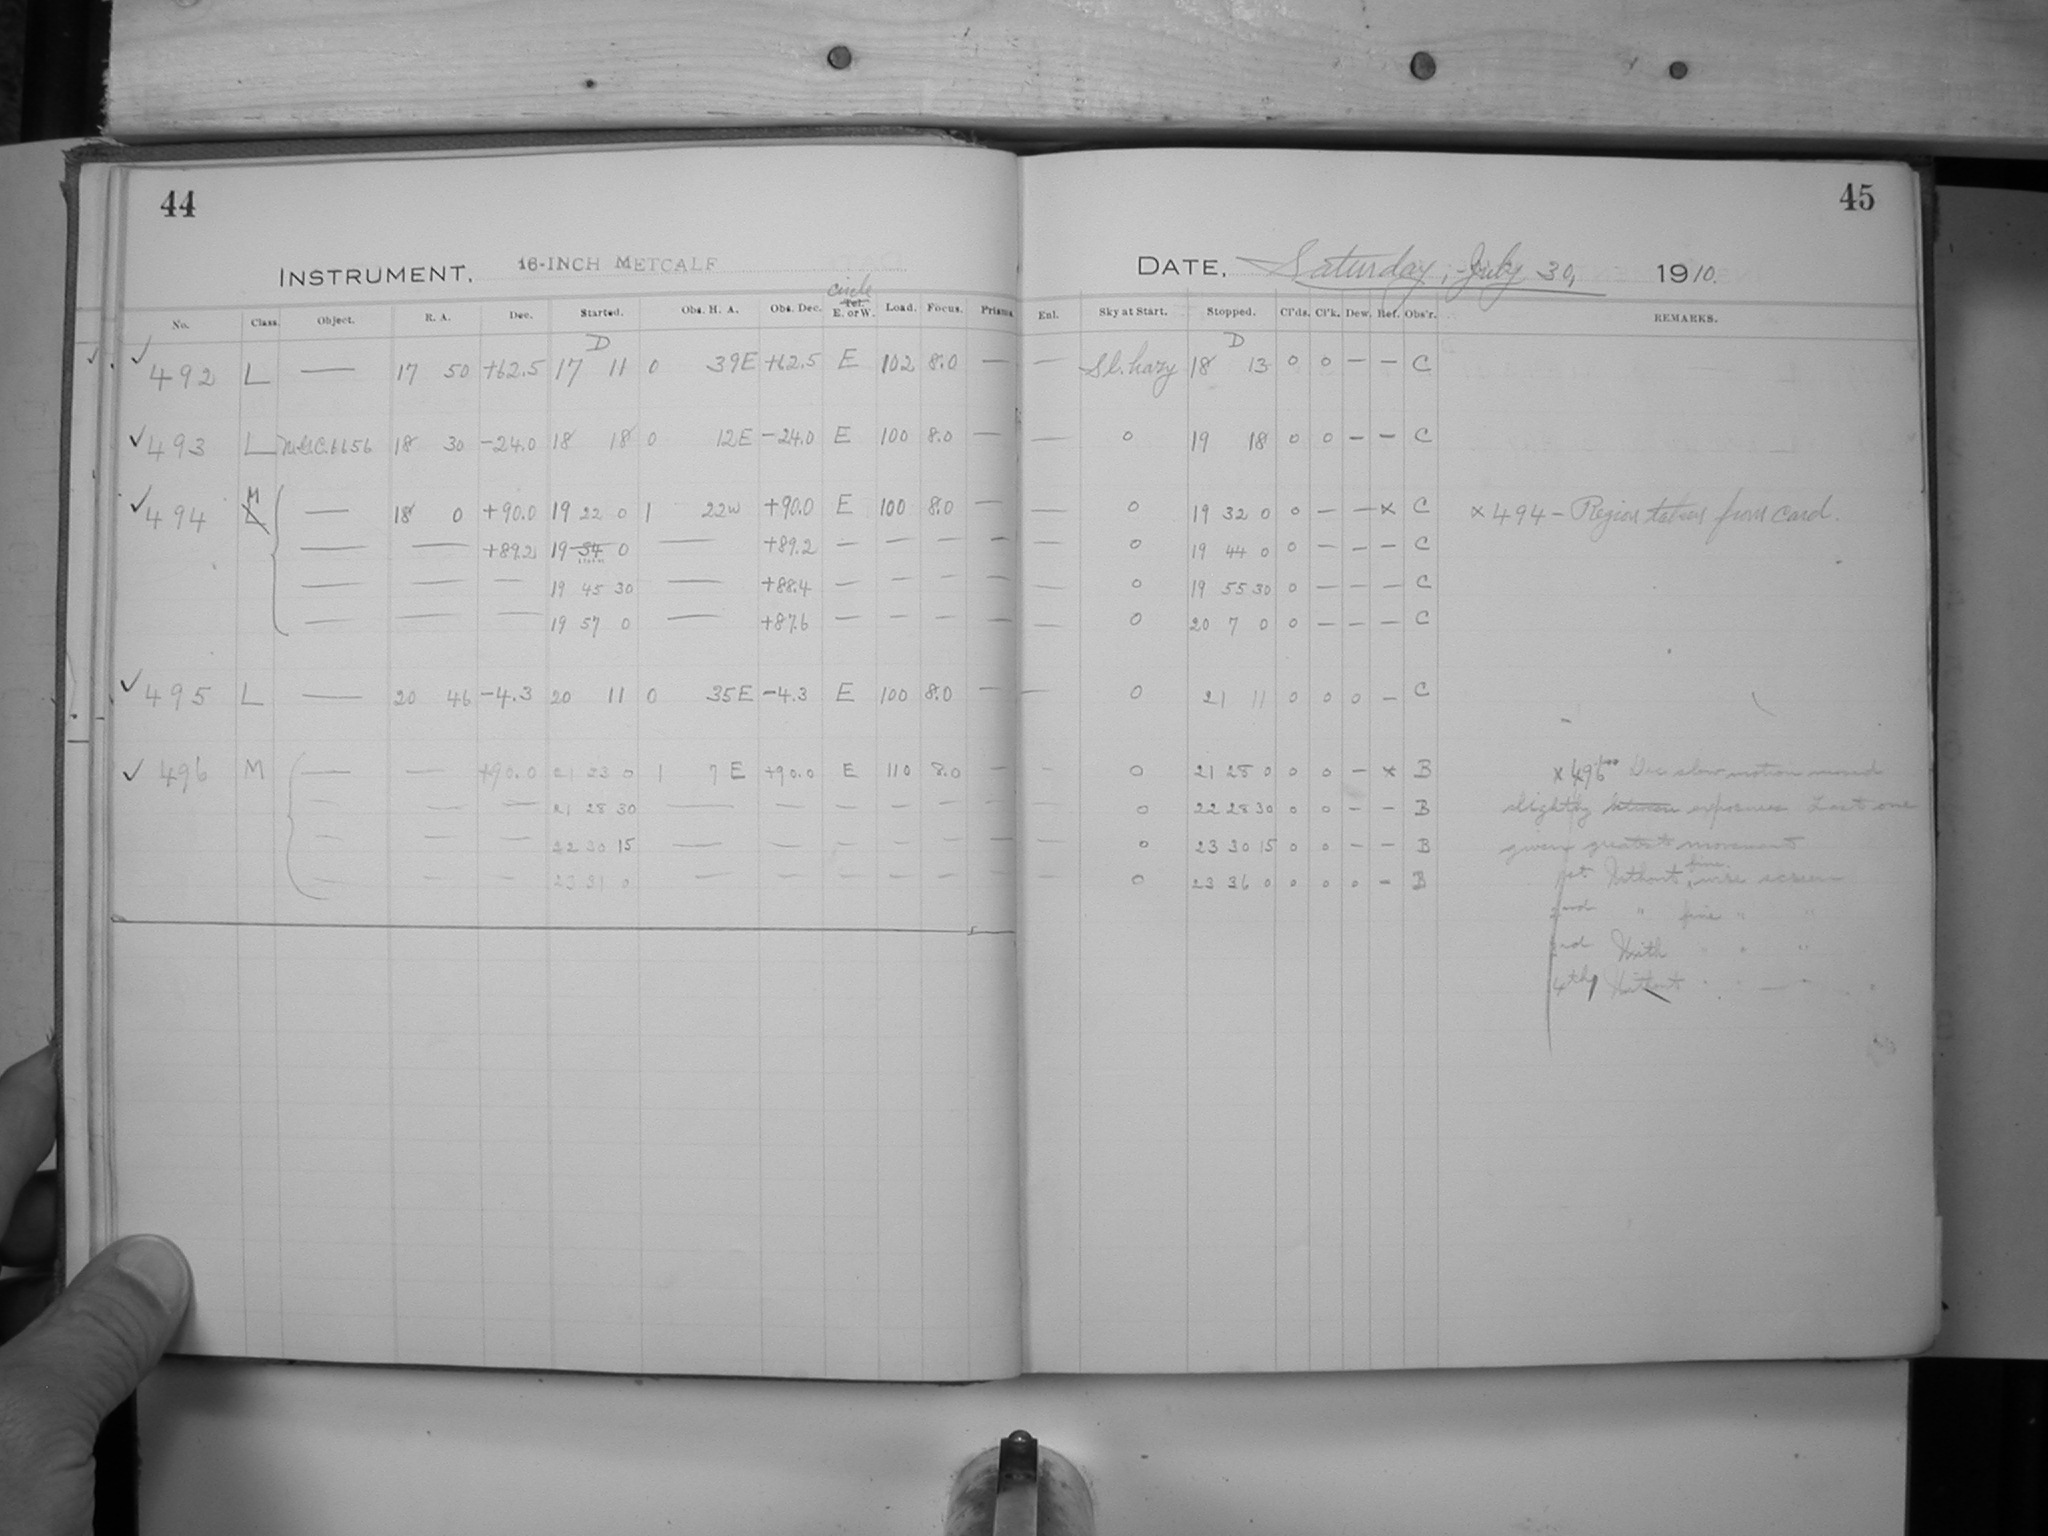 44
45
INSTRUMENT. 16-INCH METCALF
DATE, Saturday, July 30, 1910.
No. Class. Object. R. A. Dec. Started. Obs. H. A. Obs. Dec. circle Tel. E. or W. Load. Focus. Prisms. Enl. Sky at Start. Stopped. Cl'ds. Cl'k. Dew. Ref. Obs'r. REMARKS.
D D
✓ 492 L — 17 50 +62.5 17 11 0 39E +62.5 E 102 8.0 — — Sl. hazy 18 13 0 0 — — C
✓ 493 L N.G.C. 6656 18 30 -24.0 18 18 0 12E -24.0 E 100 8.0 — — 0 19 18 0 0 — — C
✓ 494 M L — 18 0 +90.0 19 22 0 1 22W +90.0 E 100 8.0 — — 0 19 32 0 0 — — x C x 494 - Region taken from card.
— — +89.2 19 34 0 — +89.2 — — — — — 0 19 44 0 0 — — — C
— — — 19 45 30 — +88.4 — — — — — 0 19 55 30 0 — — — C
— — — 19 57 0 — +87.6 — — — — — 0 20 7 0 0 — — — C
✓ 495 L — 20 46 -4.3 20 11 0 35E -4.3 E 100 8.0 — — 0 21 11 0 0 0 — C
✓ 496 M — — +90.0 21 23 0 1 7 E +90.0 E 110 8.0 — - 0 21 28 0 0 0 — x B x 496 Dec slow motion moved
— — — 21 28 30 — — — — — — — 0 22 28 30 0 0 — — B slightly between exposures Last one
— — — 22 30 15 — — — — — — — 0 23 30 15 0 0 — — B given greatest movement
— — — 23 31 0 — — — — — — — 0 23 36 0 0 0 0 — B 1st Without fine wire screen
2nd " fine " "
3rd With " " "
4th Without " " — "